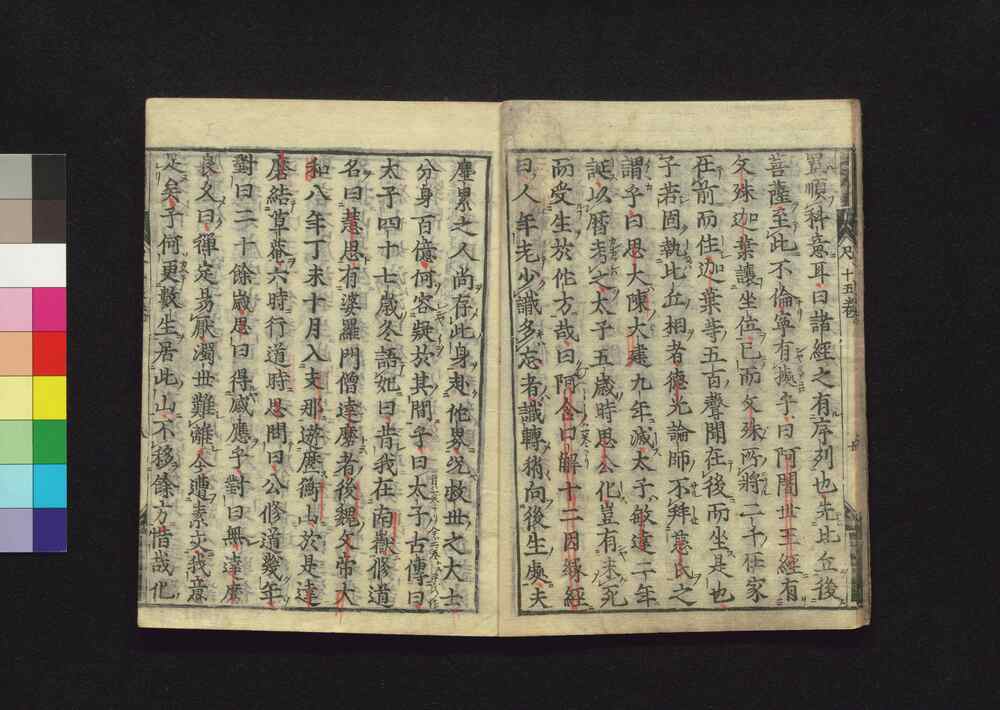 異順科意耳曰諸經之有序列也先比丘後
菩薩至此不倫寧有據乎曰阿闍世王經有
文殊迦葉讓坐位已而文殊所將二千在家
在前而住迦葉等五百聲聞在後而坐是也
子若固執比丘相者德光論師不拜慈氏之
謂乎曰思大陳大建九年滅太子敏達二年
誕以曆考之太子五歲時思公化豈有未死
而受生於他方哉曰阿含口解十二因緣經
曰人年老少識多忘者識轉稍向後生處夫
尺十五卷
塵累之人尚存此身赴他界況救世之大士
分身百億何容疑於其間乎曰太子古傳曰
太子四十七歲冬語妃曰昔我在南嶽修道
名曰慧思有婆羅門僧達磨者後魏文帝大
和八年丁未十月入支那遊歷衡山於是達
磨結草菴六時行道時思問曰公修道幾年
對曰二十餘歲思曰得感應乎對曰無達磨
良久曰禪定易厭濁世難離今遭素交我意
足矣子何更數生居此山不移餘方惜哉化